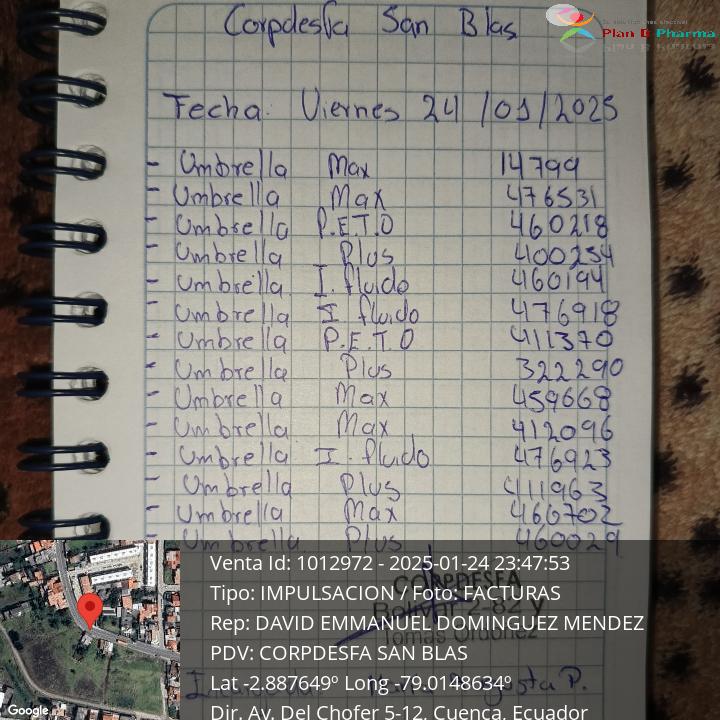 Corpdesfa San Blas
Plan B Pharma
Fecha: Viernes 24/01/2025
- Umbrella Max 14799
- Umbrella Max 476531
- Umbrella P.E.T.O 460218
- Umbrella Plus 400254
- Umbrella I. fluido 460194
- Umbrella I fluido 476918
- Umbrella P.E.T.O 411370
- Umbrella Plus 322290
- Umbrella Max 459668
- Umbrella Max 412096
- Umbrella I. fluido 476923
- Umbrella Plus 411963
- Umbrella Max 460702
- Umbrella Plus 460029
Venta Id: 1012972 - 2025-01-24 23:47:53
CORPDESFA
Tipo: IMPULSACION / Foto: FACTURAS
Bolívar 2-82 y
Rep: DAVID EMMANUEL DOMINGUEZ MENDEZ
Tomás Ordóñez
PDV: CORPDESFA SAN BLAS
Lat -2.887649º Long -79.0148634º
P.
Dir. Av. Del Chofer 5-12, Cuenca, Ecuador
Google